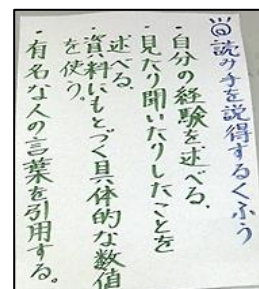 読み手を説得するくふう
・自分の経験を述べる。
・見たり聞いたりしたことを
述べる。
・資料にもとづく具体的な数値
を使う。
・有名な人の言葉を引用する。